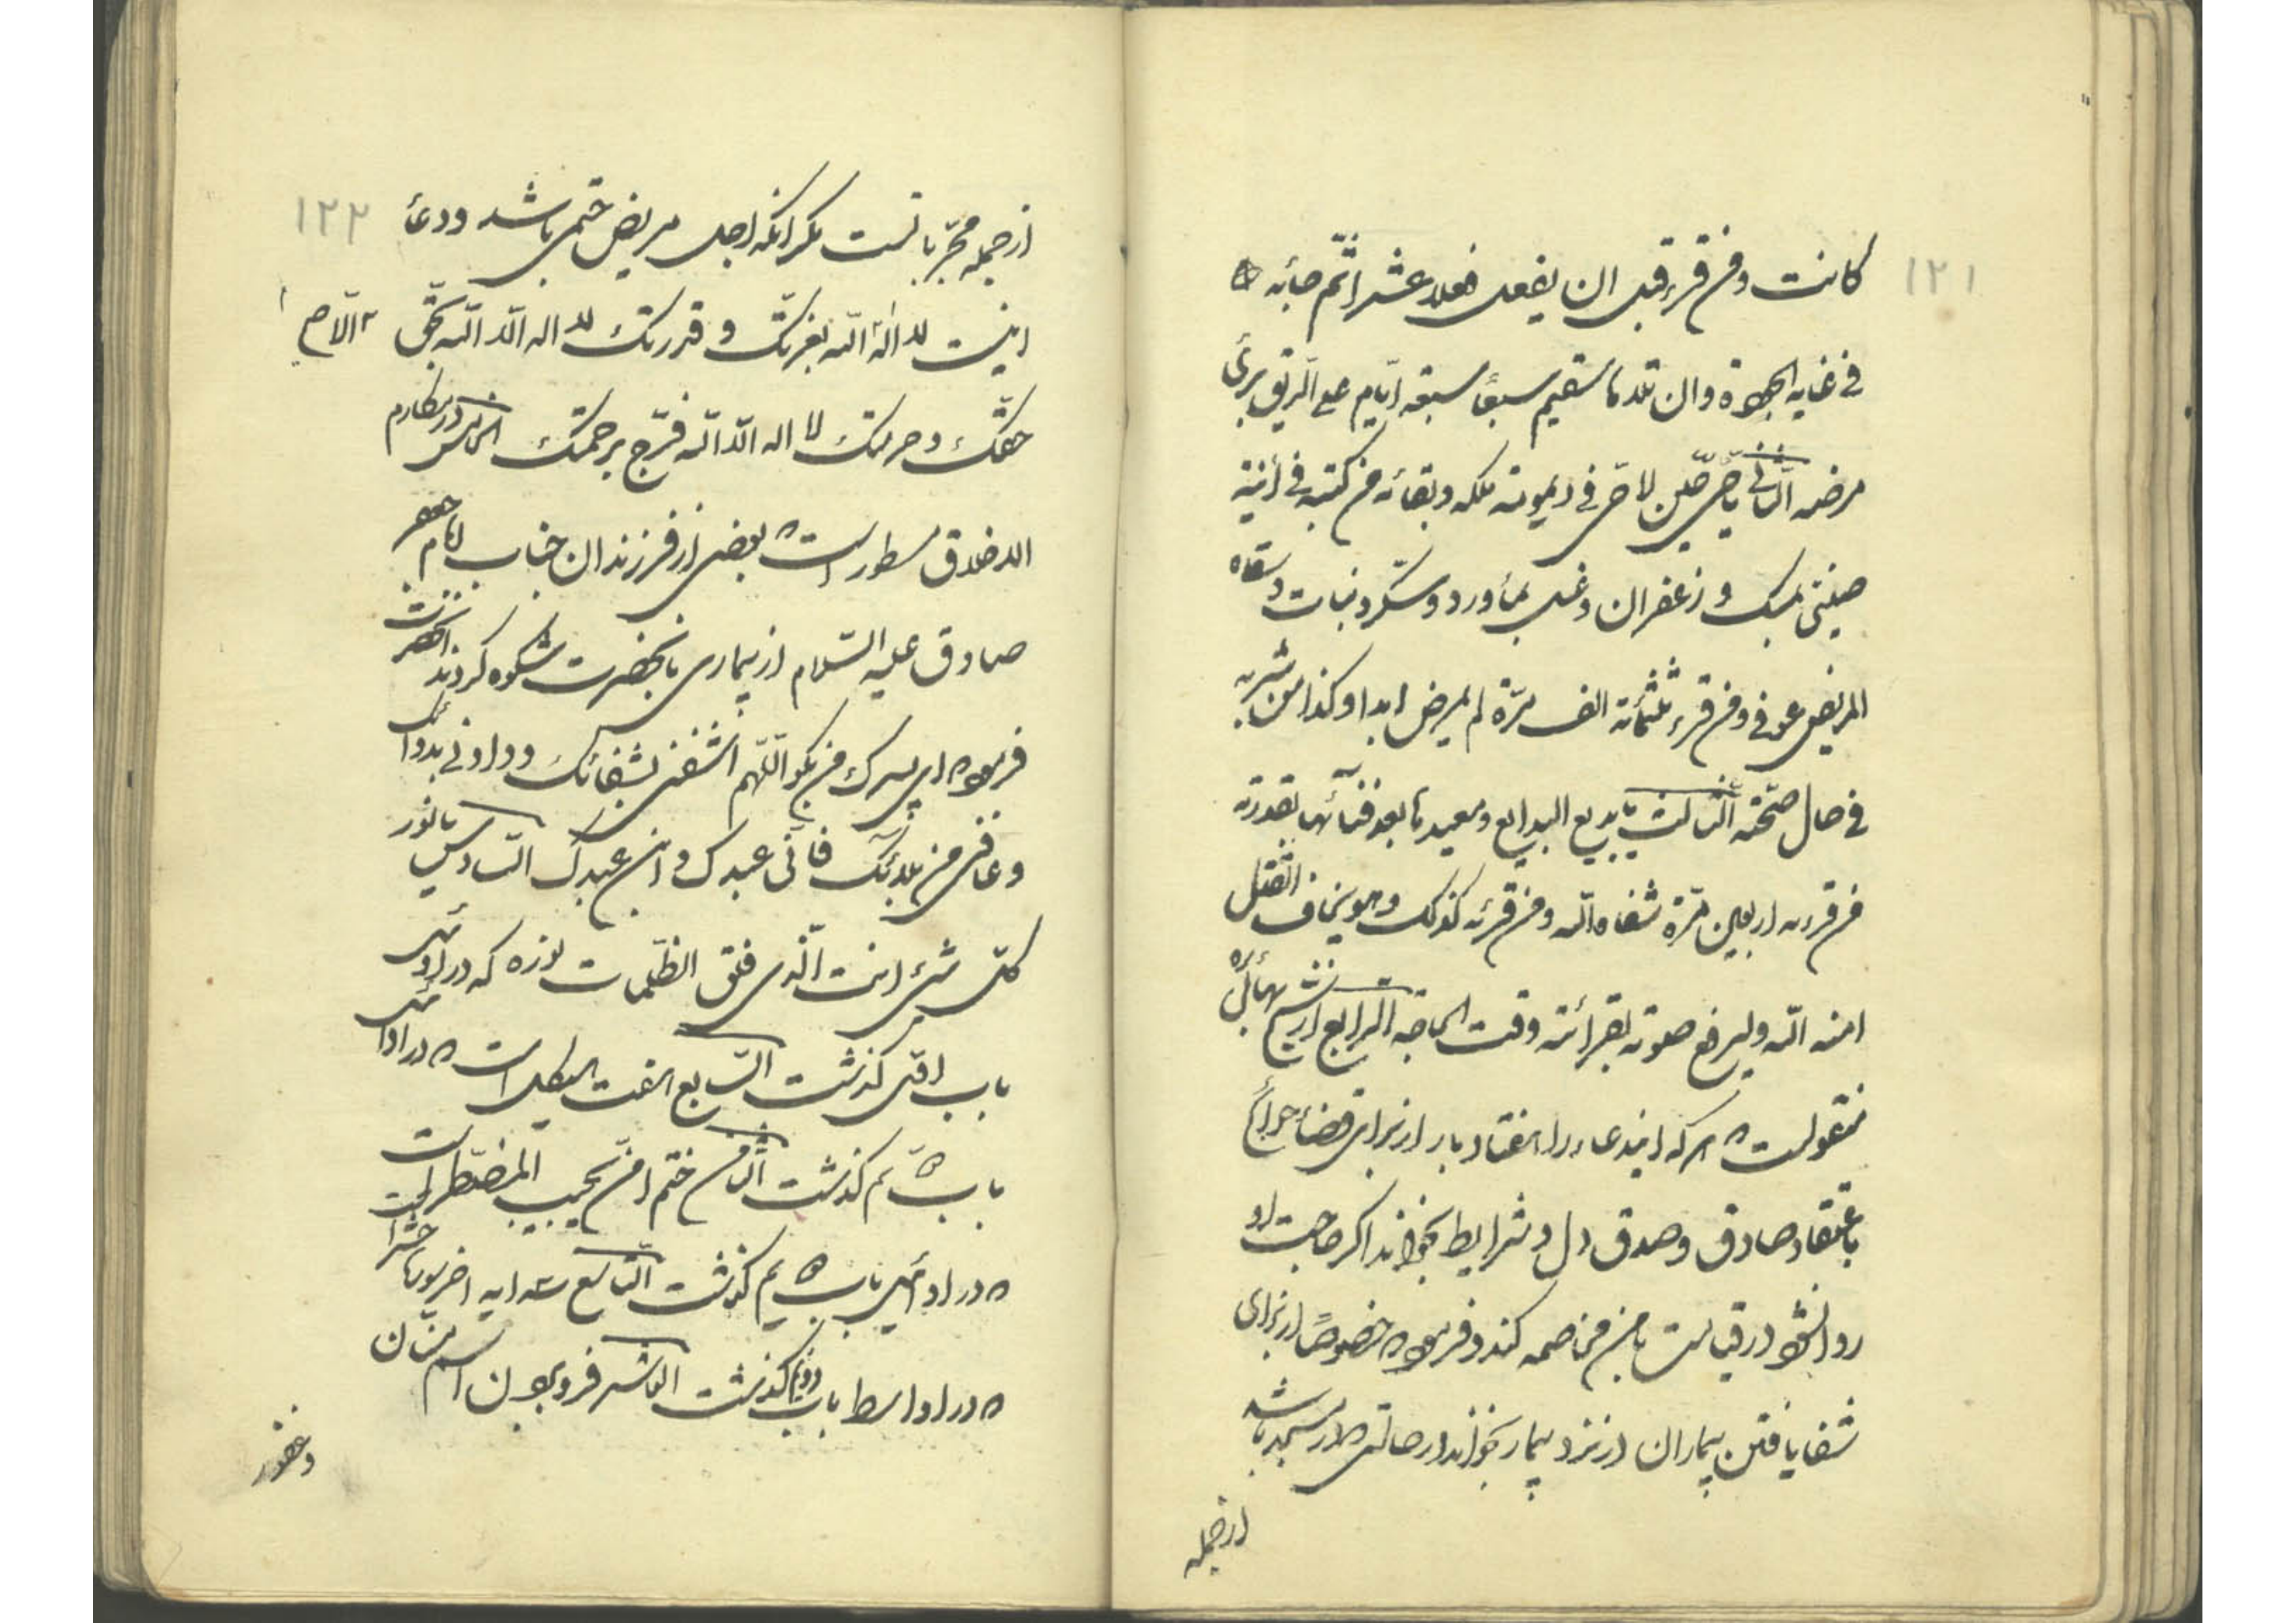 ١٢١
كانت ومن قرء قبل ان يفعل فعلا عشرا تم حيا به
فى غايه الجودة وان تلاها سقيم سبعاً سبعة ايّام على الرّيق برئ
مرضه الثّانى يا حىّ حين لا حىّ فى ديمومة ملكه وبقائه من كتبه فى انية
صينى بمسك و زعفران وغسله بماورد وسكر ونبات وسقاه
المريض عوفى ومن قرء ثلثمأئة الف مرّة لم يمرض ابدا وكذا من شربه
فى حال صحّته الثّالث يا بديع البدايع ومعيدها بعد فنائها بقدرته
من قرءه اربعين مرّة شفاه الله ومن قرئه كذلك وهو يخاف القتل
امنه الله وليرفع صوته بقرائته وقت الحاجة الرّابع از شيخ بهائى ره
منقولست ه هر كه ايندعاء را هفتاد بار از براى قضاء حوائج
باعتقاد صادق وصدق دل و شرايط بخواند اكر حاجت او
روا نشود در قيامت با من مخاصمه كند و فرموده خصوصاً از براى
شفا يافتن بيماران از نزد بيمار بخواند در حالتى ه در مسجد باشد
ازجمله
١٢٢
ازجمله مجرّباتست مكر انكه اجل مريض حتمى باشد ودعاء
اينست لا اله الّا الله بعزّتك و قدرتك لا اله الّا الله بحقّ
حقّك و حرمتك لا اله الّا الله فرّج برحمتك الخامس در مكارم
الاخلاق مسطور است ه بعضى از فرزندان جناب امام جعفر
صادق عليه السّلام از بيمارى بانحضرت شكوه كردند انحضرت
فرموده اى پسرك من بكو اللّهم اشفنى بشفائك وداونى بدوائك
وعافنى من بلائك فانّى عبدك وابن عبدك السّادس يا نور
كلّ شىء انت الّذى فلق الظّلمات نوره كه در اوائل
باب اوّل كذشت السّابع هفت هيكل است ه در اوائل
باب ه يم كذشت الثّامن ختم امّن يجيب المضطر است
ه در اوائل باب ه يم كذشت التّاسع سه ايه اخر سورۀ حشر است
ه در اواسط باب دويم كذشت العاشر فرو بردن اسم منّان
وغفور